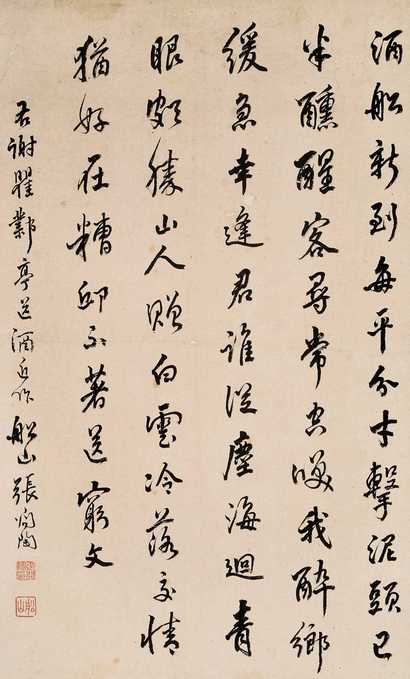 酒船新到每平分才擊泥頭已
半醺醒客尋常空嘆我醉鄉
緩急幸逢君誰從塵海迴青
眼頗勝山人贈白雲冷落交情
猶好在糟邱不著送窮文
右謝瞿鄴亭送酒近作船山張問陶
船山